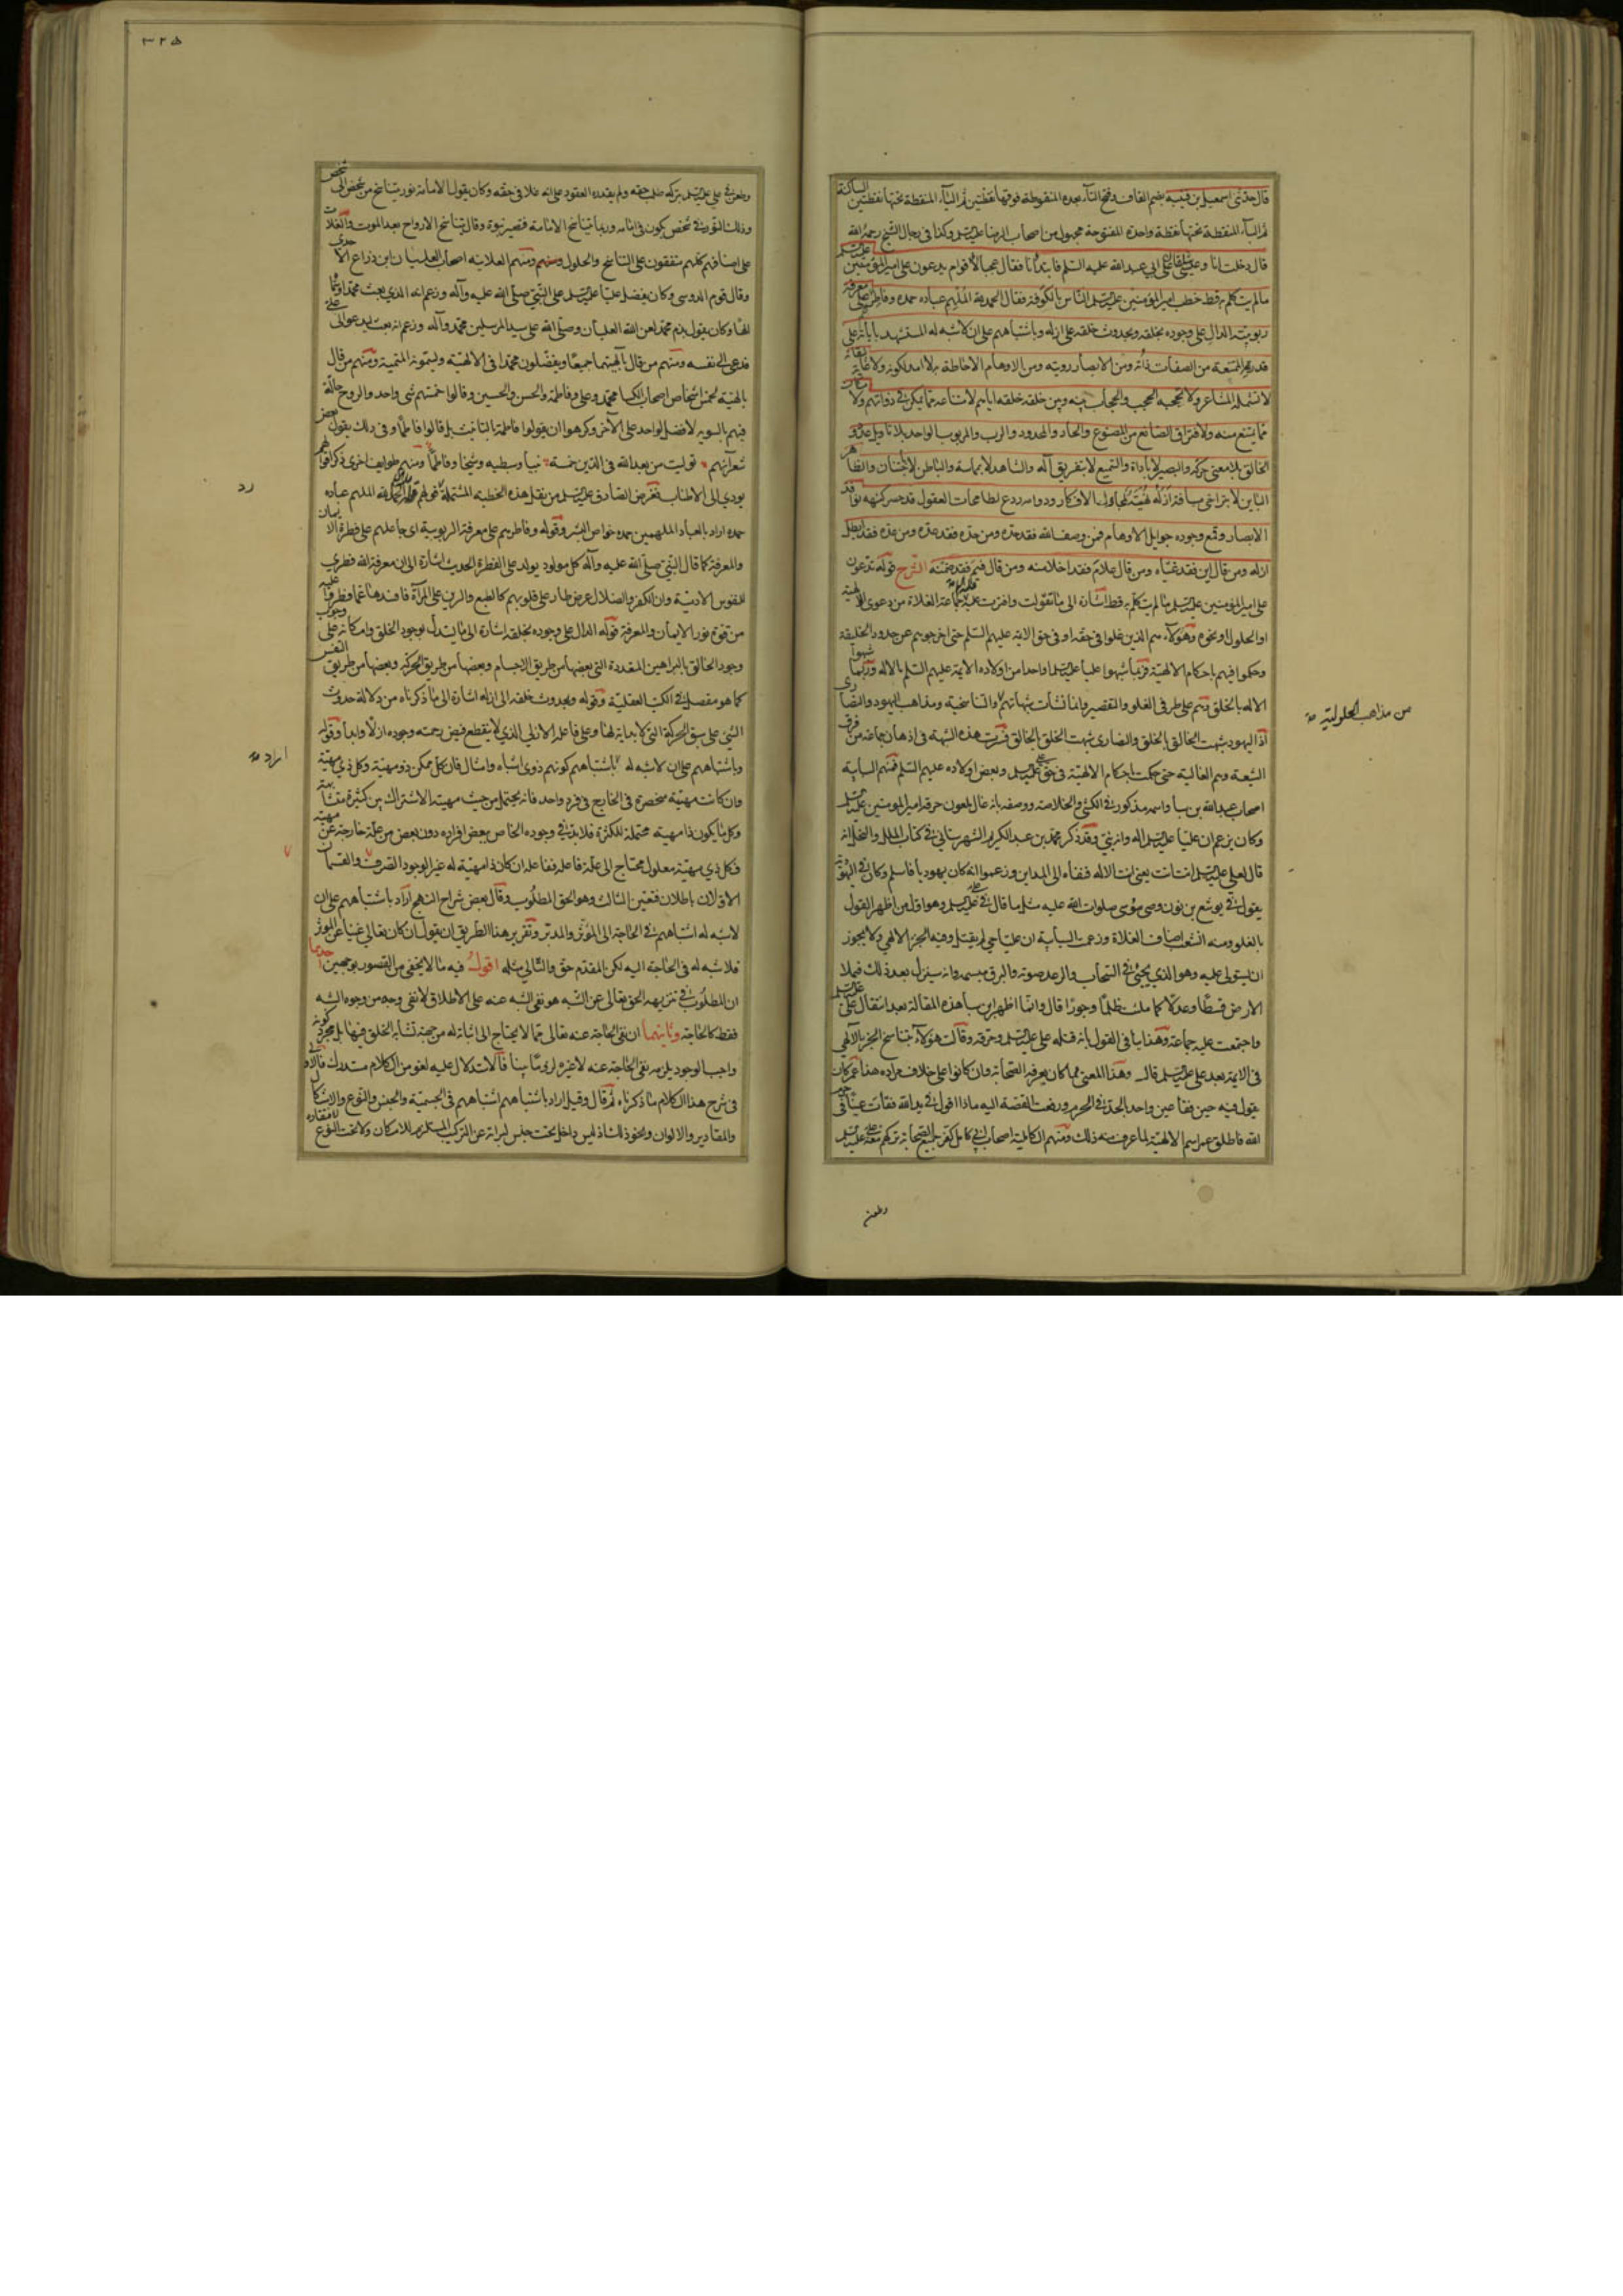 قال حدثنى اسمعيل بن قتيبة بضم القاف وفتح التآء بعده المنقوطة فوقها نقطتين ثم اليآء المنقطة تحتها نقطتين الساكنة
ثم البآء المنقطة تحتها نقطة واحدة المفتوحة مجهول من اصحاب الرضا عليه السلم وكذا فى رجال الشيخ رحمه الله
قال دخلت انا وعيسى شلقان على ابى عبد الله عليه السلم فابتدأنا فقال عجبا لاقوام يدعون على امير المؤمنين عليه السلم
ما لم يتكلم به قط خطب امير المؤمنين عليه السلم الناس بالكوفة فقال الحمد لله الملهم عباده حمده وفاطرهم على معرفة
ربوبيته الدال على وجوده بخلقه وبحدوث خلقه على ازله وباشتباههم على ان لا شبه له المستشهد باياته على
قدرته الممتنعة من الصفات ذاته ومن الابصار رويته ومن الاوهام الاحاطة به لا امد لكونه ولا غاية لبقائه
لا تشمله المشاعر ولا تحجبه الحجب والحجاب بينه وبين خلقه خلقه اياهم لامتناعه مما يمكن فى ذواتهم ولا مكان
مما يمتنع منه ولافتراق الصانع من المصنوع والحاد والمحدود والرب والمربوب الواحد بلا تاويل عدد و
الخالق لا بمعنى حركة والبصير لا باداة والسميع لا بتفريق آلة والشاهد لا بمماسة والباطن لا باجتنان والظاهر
الباين لا بتراخى مسافة ازله نهية لمجاول الافكار ودوامه ردع لطامحات العقول قد حسر كنهه نوافذ
الابصار وقمع وجوده جوايل الاوهام فمن وصف الله فقد حده ومن حده فقد عده ومن عده فقد ابطل
ازله ومن قال اين فقد غياه ومن قال علام فقد اخلا منه ومن قال فيم فقد ضمنه الشرح قوله يدعون
على امير المؤمنين عليه السلم ما لم يتكلم به قط اشارة الى ما تقولت وافترت عليه جماعة الغلاة من دعوى الالهية
او الحلول او نحوه وهؤلاء هم الذين غلوا فى حقه او فى حق الايمه عليهم السلم حتى اخرجوهم عن حدود الخليقة
وحكموا فيهم باحكام الالهية فربما شبهوا عليا عليه السلم او واحدا من اولاده الايمة عليهم السلم بالاله وربما شبهوا
الاله بالخلق فهم على طرفى الغلو والتقصير وانما نشأت شبهاتهم والتناسخية ومذاهب اليهود والنصارى
اذ اليهود شبهت الخالق بالخلق والنصارى شبهت الخلق بالخالق فسرت هذه الشبهة فى اذهان جماعة من فرق
الشيعة وهم الغالية حتى حكمت باحكام الالهية فى حق على عليه السلم وبعض اولاده عليهم السلم فمنهم السبابية
اصحاب عبد الله بن سبا واسمه مذكور فى الكشى والخلاصة ووصفه بانه غال ملعون حرقه امير المومنين عليه السلم
وكان يزعم ان عليا عليه السلم اله وانه نبى وقد ذكر محمد بن عبد الكريم الشهرستانى فى كتاب الملل والنحل انه
قال لعلى عليه السلم انت انت يعنى انت الاله فنفاه الى المداين وزعموا انه كان يهوديا فاسلم وكان فى اليهودية
يقول فى يوشع بن نون وصى موسى صلوات الله عليه مثل ما قال فى على عليه السلم وهو اول من اظهر القول
بالغلو ومنه انشعب اصناف الغلاة وزعمت السبابية ان عليا حى لم يقتل وفيه الجزء الالهى ولا يجوز
ان يستولى عليه وهو الذى يجيئ فى السحاب والرعد صوته والبرق مبسمه وانه سينزل بعد ذلك فيملا
الارض قسطا وعدلا كما ملئت ظلما وجورا قال وانما اظهر ابن سبا هذه المقالة بعد انتقال على عليه السلم
واجتمعت عليه جماعة وهذا ينافى القول بانه قتله على عليه السلم وحرقه وقالت هؤلاء بتناسخ الجزء الالهى
فى الايمة بعد على عليه السلم قال وهذا المعنى مما كان يعرفه الصحابة وان كانوا على خلاف مراده هذا عمر كان
يقول فيه حين فقأ عين واحد بالحد فى الحرم ورفعت القصة اليه ماذا اقول فى يد الله فقأت عينا فى حرم
الله فاطلق عمر اسم الالهية لما عرف منه ذلك ومنهم الكاملية اصحاب ابى كامل كفر جميع الصحابة بتركهم بيعة على عليه السلم
وطعن
من مذاهب الحلولية صح
٣٢٥
وطعن فى على عليه السلم بتركه طلب حقه ولم يقعده القعود على انه غلا فى حقه وكان يقول الامامة نور يتناسخ من شخص الى شخص
وذلك النور فى شخص يكون فى امامة وربما يتناسخ الامامة فتصير نبوة وقال بتناسخ الارواح بعد الموت والغلات
على اصنافهم كلهم متفقون على التناسخ والحلول ومنهم العلابية اصحاب العلبا بن ذراع الا
وقال قوم الدوسى وكان يفضل عليا عليه السلم على النبى صلى الله عليه وآله وزعم انه الذى بعث محمدا وسماه
الها وكان يقول بذم محمد لعن الله العلبآن وصلى الله على سيد المرسلين محمد وآله وزعم انه بعث ليدعو الى على
فدعى الى نفسه ومنهم من قال بالهيتهما جميعا ويفضلون محمدا فى الالهية ويسمونه الميمية ومنهم من قال
بالهية خمس اشخاص اصحاب الكسا محمد وعلى وفاطمة والحسن والحسين وقالوا خمستهم شى واحد والروح حالة
فيهم بالسوية لا فضل لواحد على الآخر وكرهوا ان يقولوا فاطمة بالتانيث بل قالوا فاطم وفى ذلك يقول بعض
شعرآئهم توليت من بعد الله فى الدين خمسة نبيا وسبطيه وشيخا وفاطما ومنهم طوايف اخرى ذكر اقوالهم
يودى الى الاطناب فغرض الصادق عليه السلم من نقل هذه الخطبة المشتملة قوله الحمد لله الملهم عباده
حمده اراد بالعباد الملهمين حمده خواص البشر وقوله وفاطرهم على معرفة الربوبية اى جاعلهم على فطرة الايمان
والمعرفة كما قال النبى صلى الله عليه وآله كل مولود يولد على الفطرة الحديث اشارة الى ان معرفة الله فطرى
للنفوس الادمية وان الكفر والضلال عرض طار على قلوبهم كالطبع والرين على المرآة فافسدها عما فطرها عليه
من قوة نور الايمان والمعرفة قوله الدال على وجوده بخلقه اشارة الى ما يستدل بوجود الخلق وامكانه على وجوب
وجود الخالق بالبراهين المتعددة التى بعضها من طريق الاجسام وبعضها من طريق الحركة وبعضها من طريق النفس
كما هو مفصل فى الكتب العقلية وقوله وبحدوث خلقه الى ازله اشارة الى ما ذكرناه من دلالة حدوث
الشئ على سبق الحركة التى لا بداية لها وعلى فاعله الازلى الذى لا ينقطع فيض رحمته وجوده ازلا وابدا وقوله
وباشتباههم على ان لا شبه له باشتباههم كونهم ذوى اشباه وامثال فان كل ممكن ذو مهية وكل ذى مهية
وان كانت مهيته منحصرة فى الخارج فى فرد واحد فانه يحتمل من حيث مهيته الاشتراك بين كثيرة متشابهة
وكل ما يكون ذا مهية محتملة للكثرة فلا بد فى وجوده الخاص ببعض افراده دون بعض من علة خارجة عن مهيته
فكل ذى مهية معلول محتاج الى علة فاعلة ففاعله ان كان ذا مهية له غير الوجود الصرف والقسمان
الاولان باطلان فتعين الثالث وهو الحق المطلوب وقال بعض شراح النهج اراد باشتباههم على ان
لا شبه له اشتباههم فى الحاجة الى المؤثر والمدبر وتقرير هذا الطريق ان يقول ان كان تعالى غنيا عن المؤثر
فلا شبه له فى الحاجة اليه لكن المقدم حق والتالى مثله اقول فيه ما لا يخفى من القصور بوجهين احدهما
ان المطلوب فى تنزيهه الحق تعالى عن الشبه هو نفى الشبه عنه على الاطلاق لا نفى وجه من وجوه الشبه
فقط كالحاجة وثانيهما ان نفى الحاجة عنه تعالى مما لا يحتاج الى اثباته له من جهة تشابه الخلق فيها بل مجرد كونه
واجب الوجود يلزمه نفى الحاجة عنه لا غيره لزوما بينا فالاستدلال عليه لغو من الكلام مستدرك قال
فى شرح هذا الكلام ما ذكرناه ثم قال وقيل اراد باشتباههم اشتباههم فى الجسمية والجنس والنوع والاشكال
والمقادير والالوان ونحو ذلك اذ ليس داخل تحت جنس لبرائة عن التركيب المستلزم للامكان ولا تحت النوع لافتقاره
رد
اراد صح